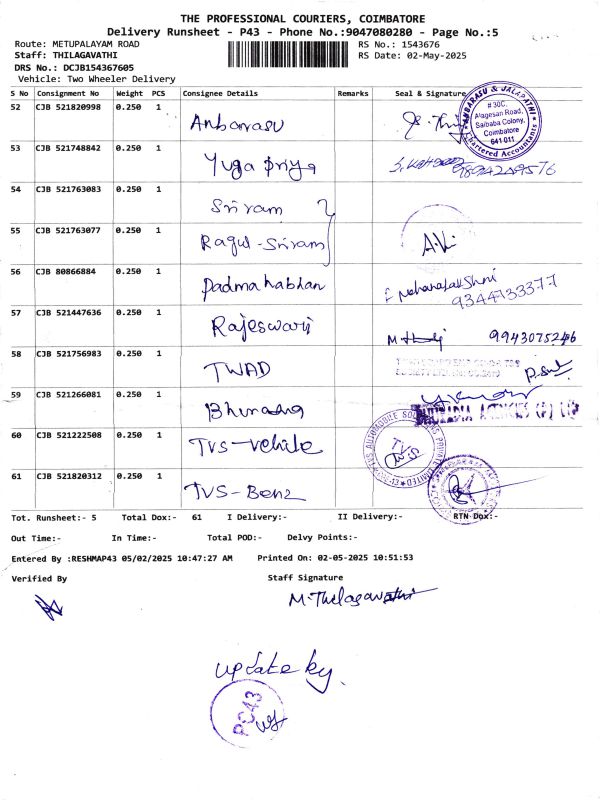 THE PROFESSIONAL COURIERS, COIMBATORE
Delivery Runsheet - P43 - Phone No.:9047080280 - Page No.:5
Route: METUPALAYAM ROAD RS No.: 1543676
Staff: THILAGAVATHI RS Date: 02-May-2025
DRS No.: DCJB154367605
Vehicle: Two Wheeler Delivery
S No Consignment No Weight PCS Consignee Details Remarks Seal & Signature
52 CJB 521820998 0.250 1 Anbarasu
ANBARASU & JALAPATHI
# 30C,
Alagesan Road,
Saibaba Colony,
Coimbatore
641 011
Chartered Accountants
53 CJB 521748842 0.250 1 Yuga priya
54 CJB 521763083 0.250 1 Sriram
55 CJB 521763077 0.250 1 Ragul-Sriram
56 CJB 80866884 0.250 1 Padmanabhan
9344733377
57 CJB 521447636 0.250 1 Rajeswari
58 CJB 521756983 0.250 1 TWAD
59 CJB 521266081 0.250 1
60 CJB 521222508 0.250 1 TVS-vehile
TVS
61 CJB 521820312 0.250 1 TVS-Benz
Tot. Runsheet:- 5 Total Dox:- 61 I Delivery:- II Delivery:- RTN Dox:-
Out Time:- In Time:- Total POD:- Delvy Points:-
Entered By :RESHMAP43 05/02/2025 10:47:27 AM Printed On: 02-05-2025 10:51:53
Verified By Staff Signature
M.Thilagavathi
update by.
PC43